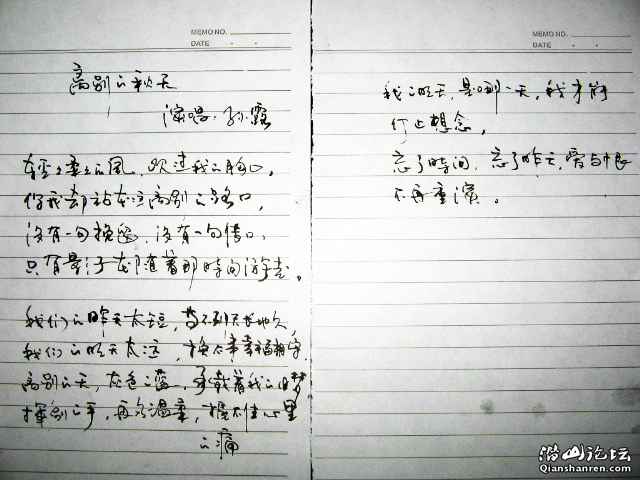 MEMO NO.
DATE
离别的秋天
演唱:孙露
轻轻柔柔的风,吹过我的胸口,
你我却站在这离别的路口,
没有一句挽留,没有一句借口,
只有影子在随着那时间游走。
我们的昨天太短,等不到天长地久,
我们的明天太远,换不来幸福相守,
离别的天,灰色的 承载着我的旧梦
挥别的手,再多温柔,握不住心里
的痛
MEMO NO.
DATE
我的明天,是哪一天,我才能
停止想念,
忘了时间,忘了昨天,爱与恨
不再重演。
潜山论坛
Qianshanren.com